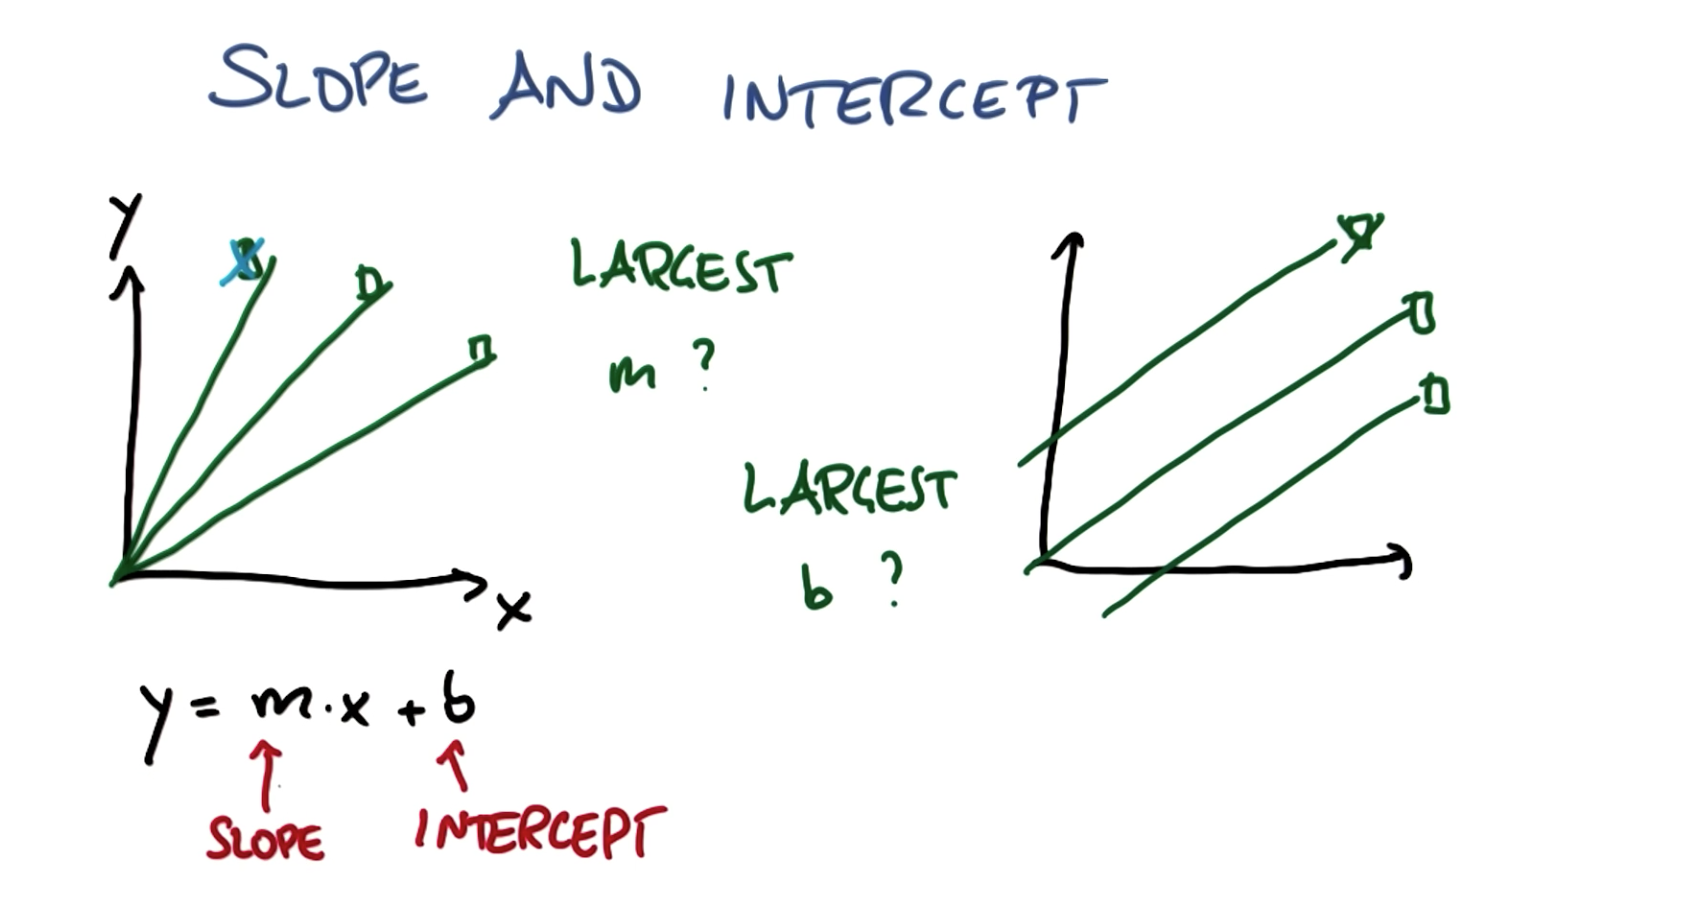 SLOPE AND INTERCEPT
y
LARGEST
m ?
x
LARGEST
b ?
y = m·x + b
SLOPE
INTERCEPT